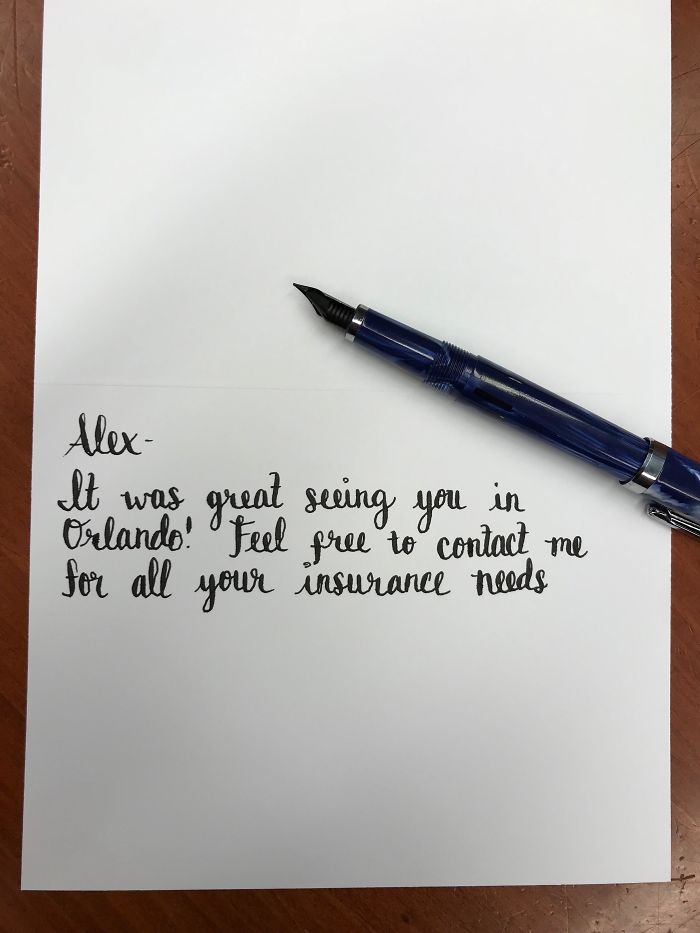 Alex-
It was great seeing you in
Orlando! Feel free to contact me
for all your insurance needs